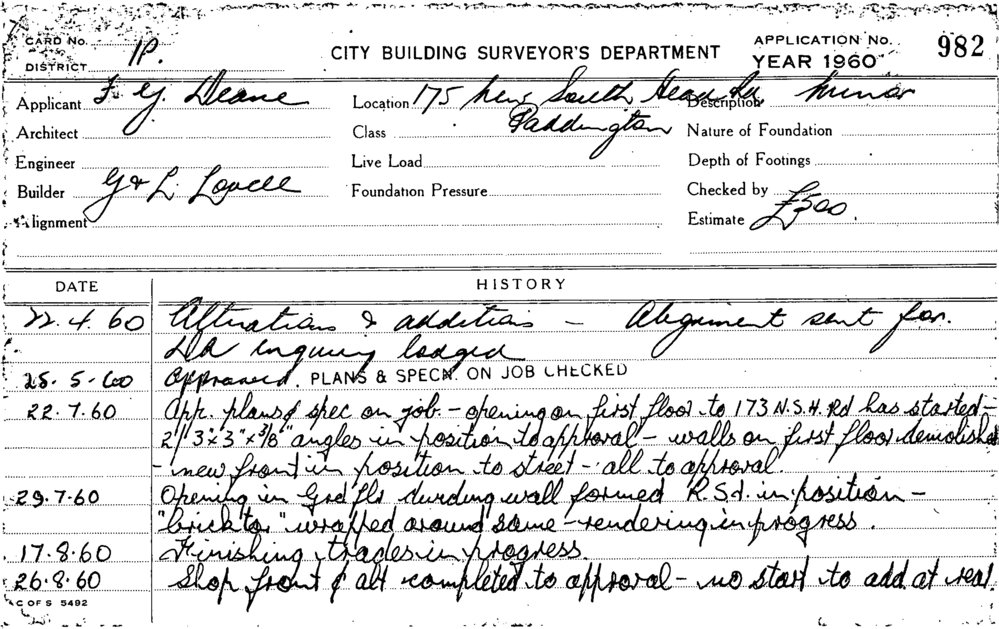 CARD No.
DISTRICT 1P.
CITY BUILDING SURVEYOR'S DEPARTMENT
APPLICATION No. 982
YEAR 1960
Applicant F. G. Deane
Location 175 New South Head Rd Paddington
Description Minor
Architect
Class
Nature of Foundation
Engineer
Live Load
Depth of Footings
Builder G & L. Lovell
Foundation Pressure
Checked by
Alignment
Estimate £500.
DATE HISTORY
22.4.60 Alterations & additions – Alignment sent for.
DA enquiry lodged
25.5.60 Approved. PLANS & SPECN. ON JOB CHECKED
22.7.60 App. plans & spec on job. – opening on first floor to 173 N.S.H. Rd has started –
2/ 3" x 3" x 3/8" angles in position to approval – walls on first floor demolished
– new front in position to street – all to approval.
29.7.60 Opening in Grd flr dividing wall formed R.S.J. in position –
wrapped around same – rendering in progress.
17.8.60 Finishing trades in progress.
26.8.60 Shop front & alt completed to approval – no start to add at rear.
C OF S 5492